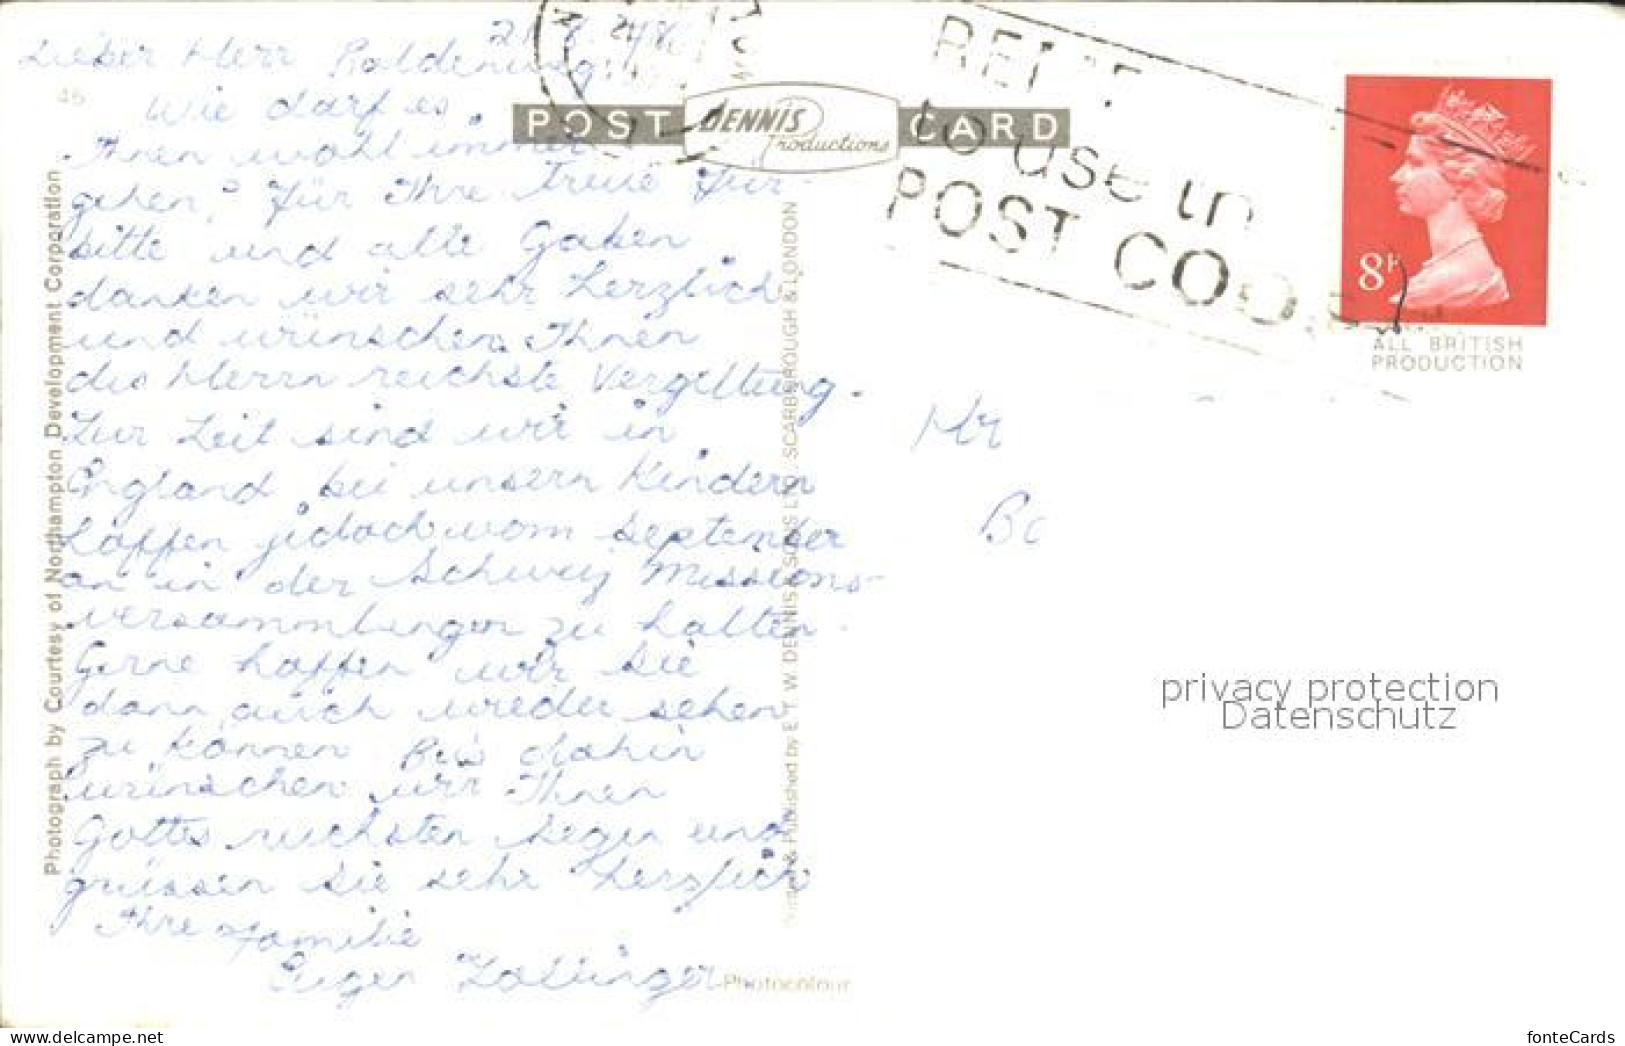 Lieber Herr
Wie darf es
Ihnen wohl immer
gehen? Für Ihre Treue Für-
bitte und alle Gaben
danken wir sehr herzlich
und wünschen Ihnen
des Herrn reichste Vergeltung.
Zur Zeit sind wir in
England bei unsern Kindern
hoffen jedoch vom September
an in der Schweiz Missions-
versammlungen zu halten.
Gerne hoffen wir Sie
dann auch wieder sehen
zu können Bis dahin
wünschen wir Ihnen
Gottes reichsten Segen und
grüssen Sie sehr herzlich
Ihre Familie
Eugen Zollinger
46
POST CARD
DENNIS Productions
to use
POST
8P
ALL BRITISH
PRODUCTION
Mr
Photograph by Courtesy of Northampton Development Corporation
Published by E. T. W. DENNIS & SONS LTD. SCARBOROUGH & LONDON
Photocolour
privacy protection
Datenschutz
www.ansichtskarten-center.de
fonteCards